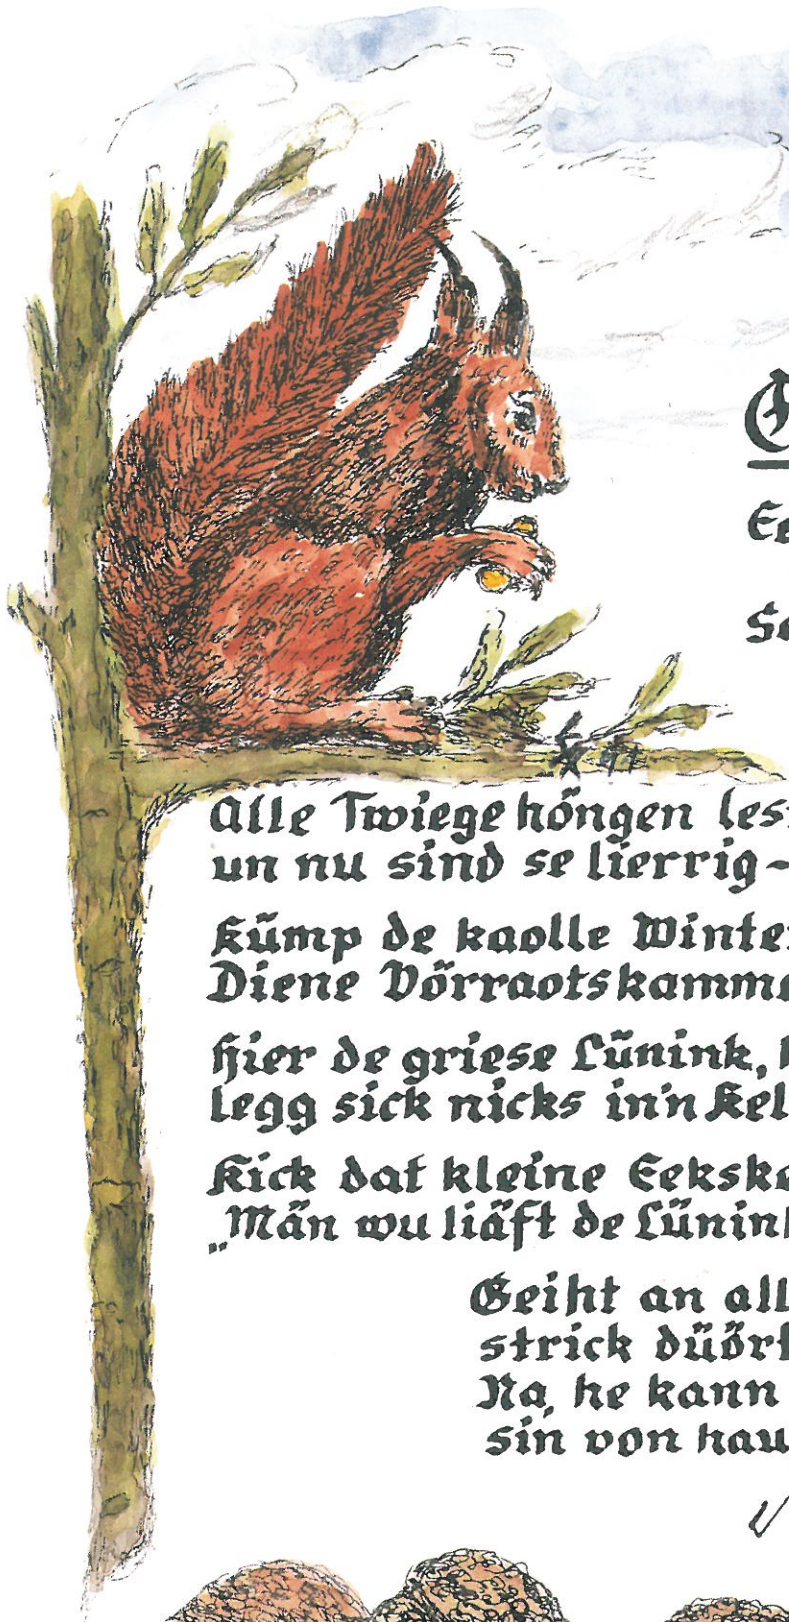 Ee
Se
Alle Twiege höngen les
un nu sind se lierrig –
Kümp de kaolle Winte
Diene Vörraotskamme
Hier de griese Lünink,
legg sick nicks in'n Kel
Kick dat kleine Eekske
„Män wu liäft de Lünink
Geiht an all
strick düör
Na, he kann
sin von hau